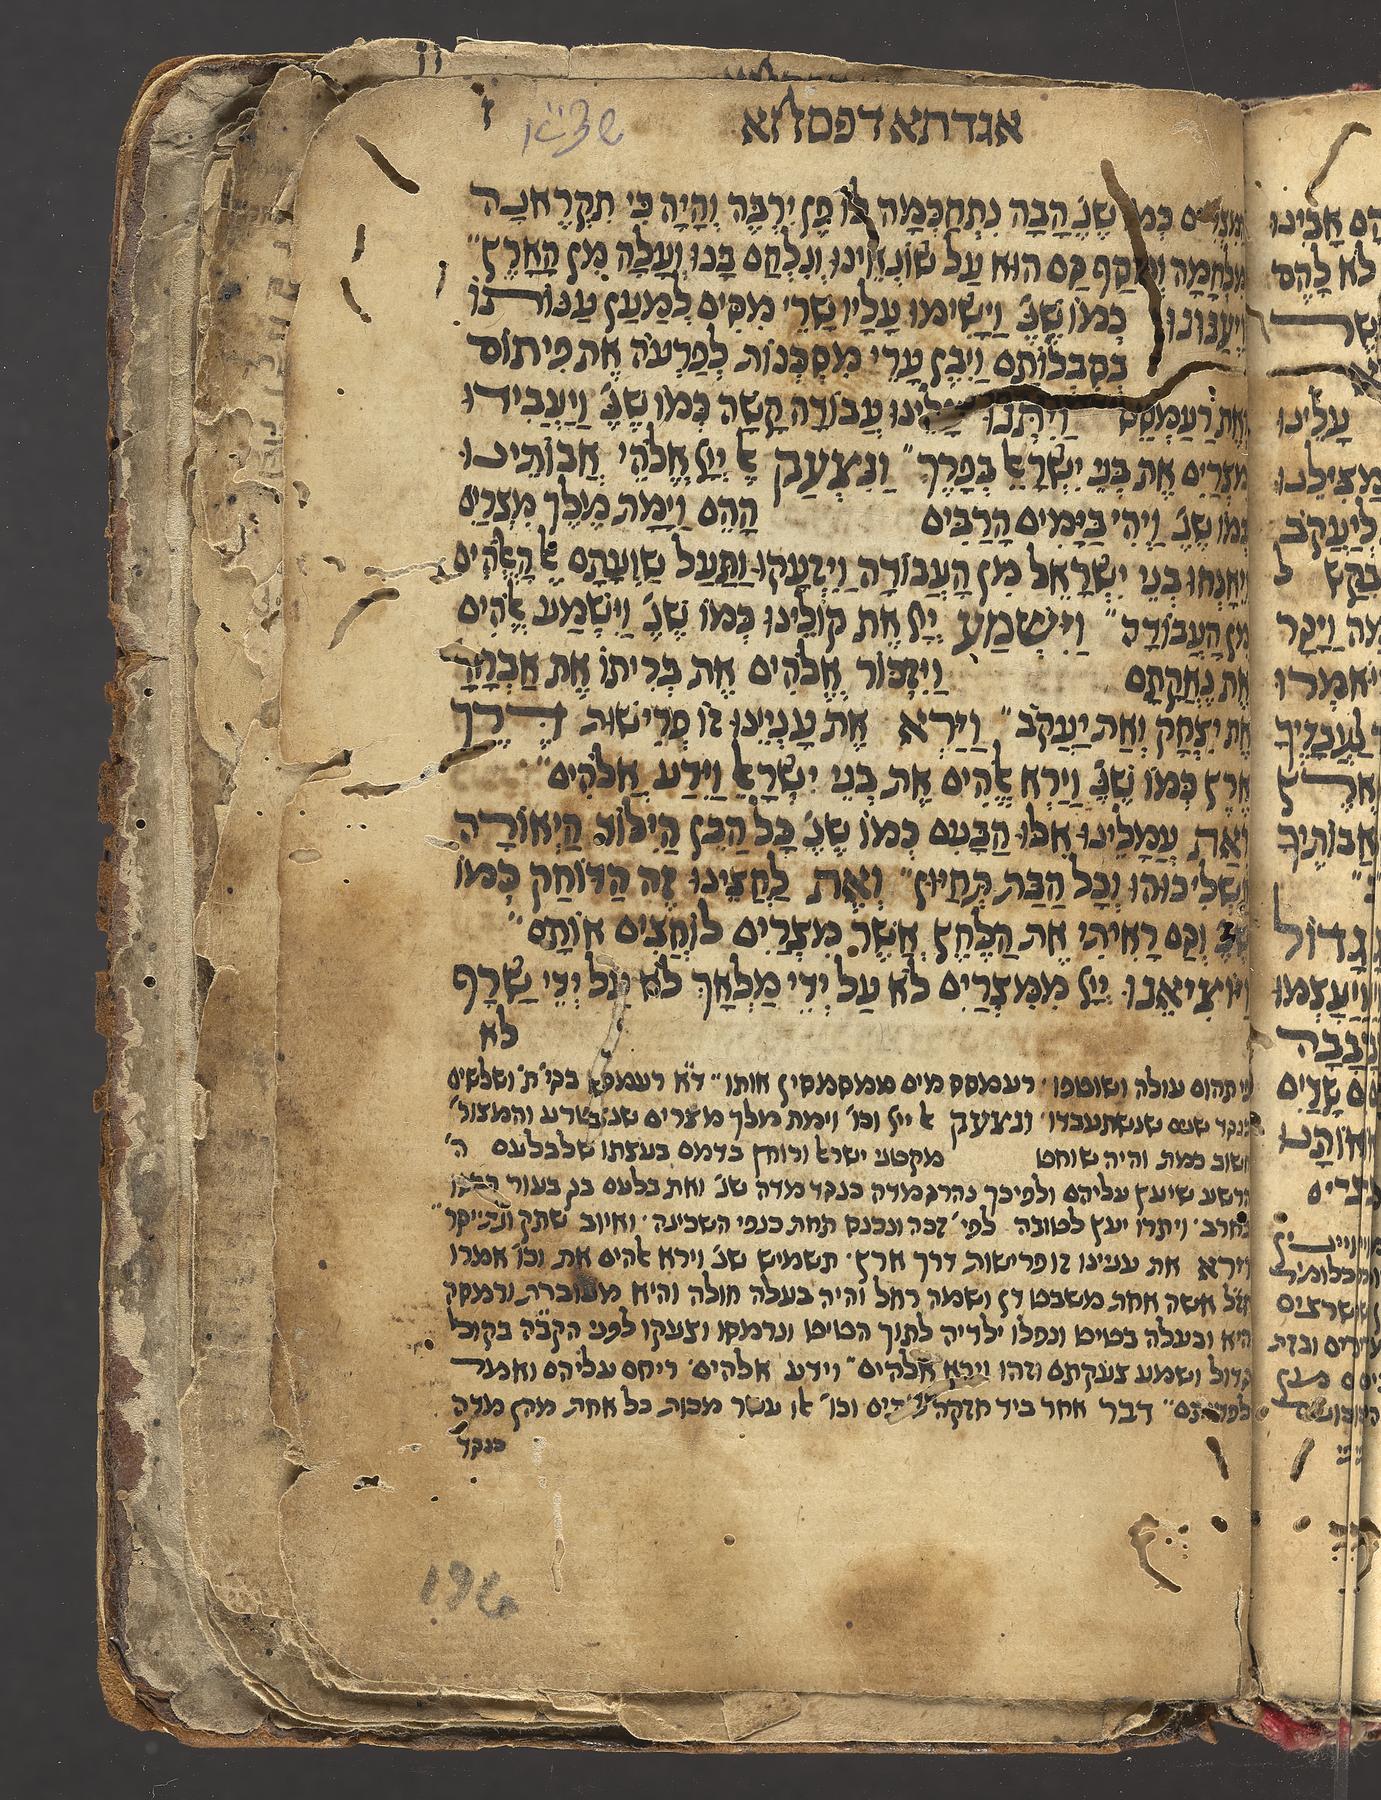 אגדתא דפסחא
מִצְרַיִם כְּמוֹ שֶׁנֶּ' הָבָה נִתְחַכְּמָה לוֹ פֶּן יִרְבֶּה וְהָיָה כִּי תִקְרֶאנָה
מִלְחָמָה וְנוֹסַף גַּם הוּא עַל שׂוֹנְאֵינוּ וְנִלְחַם בָּנוּ וְעָלָה מִן הָאָרֶץ״
וַיְעַנּוּנוּ כְּמוֹ שֶׁנֶּ' וַיָּשִׂימוּ עָלָיו שָׂרֵי מִסִּים לְמַעַן עַנּוֹתוֹ
בְּסִבְלוֹתָם וַיִּבֶן עָרֵי מִסְכְּנוֹת לְפַרְעֹה אֶת פִּיתוֹם
וְאֶת רַעַמְסֵס וַיִּתְּנוּ עָלֵינוּ עֲבוֹדָה קָשָׁה כְּמוֹ שֶׁנֶּ' וַיַּעֲבִידוּ
מִצְרַיִם אֶת בְּנֵי יִשְׂרָאֵל בְּפָרֶךְ״ וַנִּצְעַק אֶל יְיָ אֱלֹהֵי אֲבוֹתֵינוּ
כְּמוֹ שֶׁנֶּ' וַיְהִי בַיָּמִים הָרַבִּים הָהֵם וַיָּמָת מֶלֶךְ מִצְרַיִם
וַיֵּאָנְחוּ בְנֵי יִשְׂרָאֵל מִן הָעֲבוֹדָה וַיִּזְעָקוּ וַתַּעַל שַׁוְעָתָם אֶל הָאֱלֹהִים
מִן הָעֲבוֹדָה״ וַיִּשְׁמַע יְיָ אֶת קוֹלֵינוּ כְּמוֹ שֶׁנֶּ' וַיִּשְׁמַע אֱלֹהִים
אֶת נַאֲקָתָם וַיִּזְכּוֹר אֱלֹהִים אֶת בְּרִיתוֹ אֶת אַבְרָהָם
אֶת יִצְחָק וְאֶת יַעֲקֹב״ וַיַּרְא אֶת עָנְיֵינוּ זוֹ פְרִישׁוּת דֶרֶךְ
אֶרֶץ כְּמוֹ שֶׁנֶּ' וַיַּרְא אֱלֹהִים אֶת בְּנֵי יִשְׂרָאֵל וַיֵּדַע אֱלֹהִים״
וְאֶת עֲמָלֵינוּ אֵלוּ הַבָּנִים כְּמוֹ שֶׁנֶּ' כָּל הַבֵּן הַיִלּוֹד הַיְאוֹרָה
תַשְׁלִיכוּהוּ וְכָל הַבַּת תְּחַיּוּן״ וְאֶת לַחֲצֵינוּ זֶה הַדּוֹחַק כְּמוֹ
שֶׁנֶּ' וְגַם רָאִיתִי אֶת הַלַּחַץ אֲשֶׁר מִצְרַיִם לוֹחֲצִים אוֹתָם״
וַיּוֹצִיאֵנוּ יְיָ מִמִּצְרַיִם לֹא עַל יְדֵי מַלְאָךְ לֹא עַל יְדֵי שָׂרָף
לא
תהום עולה ושוטפו׳ רעמסס מים ממסמסין אותו״ ד״א רעמסס בגי׳ ת׳ ושלשים
כנגד שנים שנשתעבדו׳ ונצעק אל ייי וכו׳ וימת מלך מצרים שנצטרע והמצור׳
חשוב כמת והיה שוחט מקטני ישראל ורוחץ בדמם בעצתו של בלעם ה׳
הרשע שיעץ עליהם ולפיכך נהרג מדה כנגד מדה שנ׳ ואת בלעם בן בעור הרגו
בחרב׳ ויתרו יעץ לטובה לפי׳ זכה ונכנס תחת כנפי השכינה׳ ואיוב שתק ונתייסר״
וירא את ענינו זו פרישות דרך ארץ׳ תשמיש שנ׳ וירא אלהים את וכו׳ אמרו
חז״ל אשה אחת משבט דן ושמה רחל והיה בעלה חולה והיא מעוברת ורמסה
היא ובעלה בטיט ונפלו ילדיה לתוך הטיט ונרמסו וצעקו לפני הקב״ה בקול
גדול ושמע צעקתם וזהו וירא אלהים״ וידע אלהים׳ ריחם עליהם ואמר
דבר אחר ביד חזקה שתים וכו׳ אלו עשר מכות כל אחת מהן מדה
כנגד